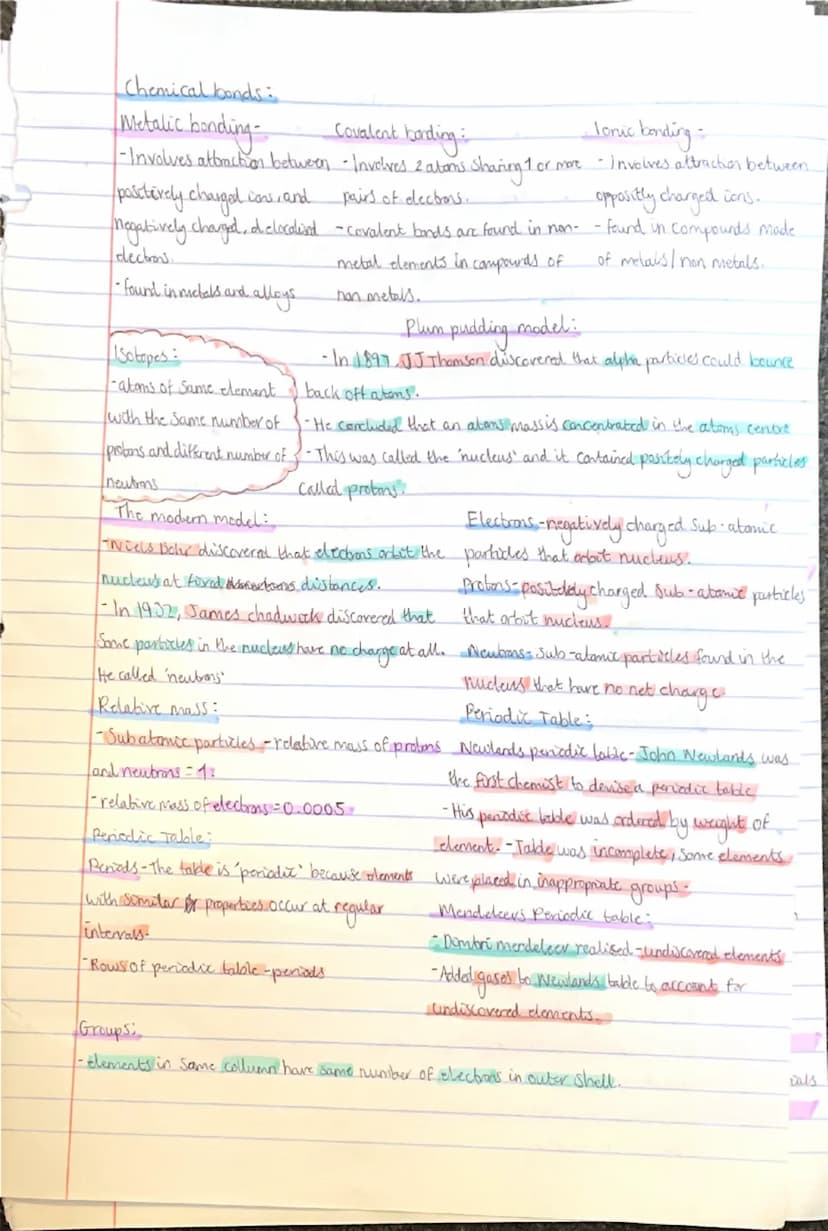 Chemical bonds:
Metalic bonding-
-Involves attraction between
positively charged ions, and
negatively charged, delocalised
electrons.
-found in metals and alloys
Covalent bonding:
-Involves 2 atoms sharing 1 or more
pairs of electrons.
-covalent bonds are found in non-
metal elements in compounds of
non metals.
Ionic bonding-
-involves attraction between
oppositly charged ions.
-found in compounds made
of metals/non metals.
Isotopes:
-atoms of same element
with the same number of
protons and different number of
neutrons
Plum pudding model:
-In 1897, JJ Thomson discovered that alpha particles could bounce
back off atoms.
-He concluded that an atoms mass is concentrated in the atoms centre
-This was called the 'nucleus' and it contained positely charged particles
called protons.
The modern model:
-Niels Bohr discovered that electrons orbit the
nucleus at fixed distances.
-In 1932, James chadwick discovered that
Some particles in the nucleus have no charge at all.
He called 'neutrons'
Relative mass:
-Subatomic particles -relative mass of protons
and neutrons = 1.
-relative mass of electrons = 0.0005
Periodic Table:
Periods-The table is 'periodic' because elements
with similar properties occur at regular
intervals-
-Rows of periodic table-periods
Electrons-negatively charged Sub-atomic
particles that orbit nucleus.
Protons-charged Sub-atomic particles
that orbit nucleus.
Neutrons-Sub-atomic particles found in the
nucleus that have no net charge
Periodic Table:
Newlands periodic table-John Newlands was
the first chemist to devise a periodic table
-His periodic table was ordered by weight of
element. -Table was incomplete, some elements
were placed in inappropriate groups-
Mendeleevs Periodic table:
-mendeleev realised-undiscovered elements
-Added gases to Newlands table to account for
undiscovered elements.
Groups:
-elements in same column have same number of electrons in outer shell.